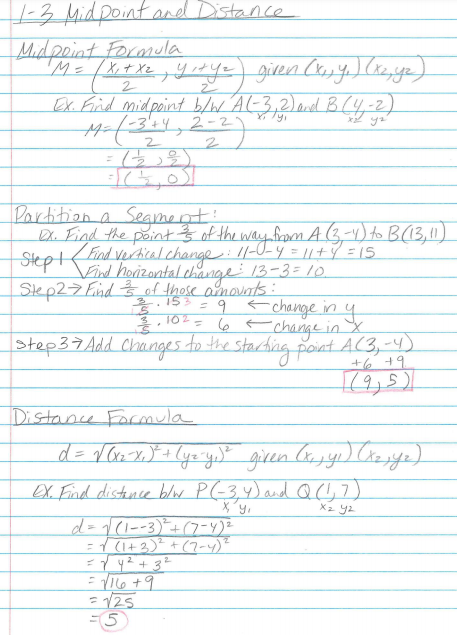 1-3 Midpoint and Distance
Midpoint Formula
M = (x₁+x₂/2, y₁+y₂/2) given (x₁,y₁) (x₂,y₂)
Ex. Find midpoint b/w A(-3,2) and B(4,-2)
x₁ y₁ x₂ y₂
M = (-3+4/2, 2-2/2)
= (1/2, 0/2)
= (1/2, 0)
Partition a Segment:
Ex. Find the point 3/5 of the way from A(3,-4) to B(13,11)
Step 1 Find vertical change: 11--4 = 11+4 = 15
Find horizontal change: 13-3 = 10
Step 2 → Find 3/5 of those amounts:
3/5 · 15 3 = 9 ← change in y
3/5 · 10 2 = 6 ← change in x
Step 3 → Add changes to the starting point A(3,-4)
+6 +9
(9,5)
Distance Formula
d = √(x₂-x₁)²+(y₂-y₁)² given (x₁,y₁) (x₂,y₂)
Ex. Find distance b/w P(-3,4) and Q(1,7)
x₁ y₁ x₂ y₂
d = √(1--3)²+(7-4)²
= √(1+3)²+(7-4)²
= √4²+3²
= √16+9
= √25
= 5